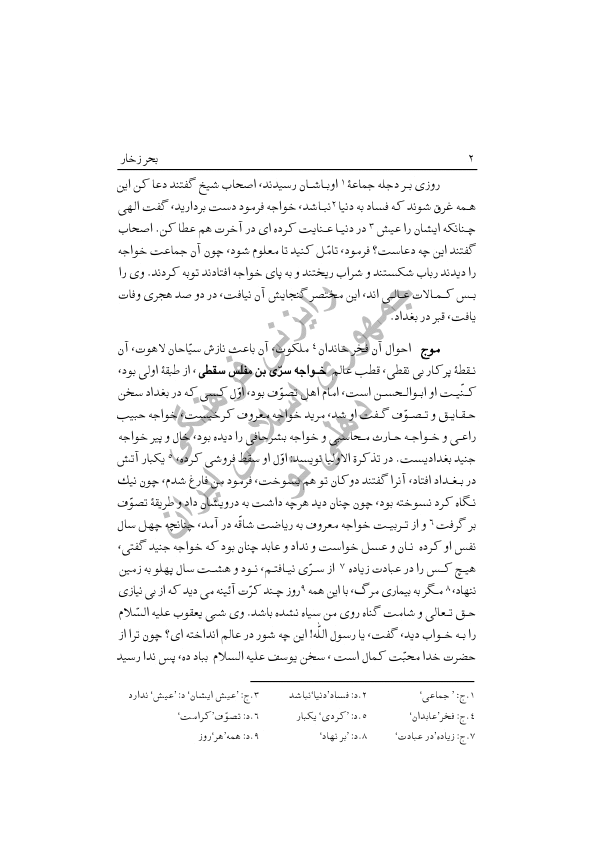 ۲
بحر زخار
روزی بر دجله جماعهٔ ۱ اوباشان رسیدند، اصحاب شیخ گفتند دعا کن این
همه غرق شوند که فساد به دنیا ۲ نباشد، خواجه فرمود دست بردارید، گفت الهی
چنانکه ایشان را عیش ۳ در دنیا عنایت کرده ای در آخرت هم عطا کن. اصحاب
گفتند این چه دعاست؟ فرمود، تامّل کنید تا معلوم شود، چون آن جماعت خواجه
را دیدند رباب شکستند و شراب ریختند و به پای خواجه افتادند توبه کردند. وی را
بس کمالات عالی اند، این مختصر گنجایش آن نیافت، در دو صد هجری وفات
یافت، قبر در بغداد.
موج احوال آن فخر خاندان ۴ ملکوت، آن باعث نازش سیّاحان لاهوت، آن
نقطهٔ پرکار بی نقطی، قطب عالم خواجه سرّی بن مفلس سقطی، از طبقهٔ اولی بود،
کنّیت او ابوالحسن است، امام اهل تصوّف بود، اوّل کسی که در بغداد سخن
حقایق و تصوّف گفت او شد، مرید خواجه معروف کرخیست، خواجه حبیب
راعی و خواجه حارث محاسبی و خواجه بشرحافی را دیده بود، خال و پیر خواجه
جنید بغدادیست. در تذکرة الاولیا نویسد: اوّل او سقط فروشی کرده، ۵ یکبار آتش
در بغداد افتاد، آنرا گفتند دوکان تو هم بسوخت، فرمود من فارغ شدم، چون نیك
نگاه کرد نسوخته بود، چون چنان دید هرچه داشت به درویشان داد و طریقهٔ تصوّف
بر گرفت ۶ و از تربیت خواجه معروف به ریاضت شاقّه در آمد، چنانچه چهل سال
نفس او کرده نان و عسل خواست و نداد و عابد چنان بود که خواجه جنید گفتی،
هیچ کس را در عبادت زیاده ۷ از سرّی نیافتم، نود و هشت سال پهلو به زمین
ننهاد، ۸ مگر به بیماری مرگ، با این همه ۹ روز چند کرّت آئینه می دید که از بی نیازی
حق تعالی و شامت گناه روی من سیاه نشده باشد. وی شبی یعقوب علیه السّلام
را به خواب دید، گفت، یا رسول اللّه! این چه شور در عالم انداخته ای؟ چون ترا از
حضرت خدا محبّت کمال است ، سخن یوسف علیه السلام بباد ده، پس ندا رسید
۱.ج: ’ جماعی‘ ۲.د: فساد’دنیا‘نباشد ۳.ج: ’عیش ایشان‘ د: ’عیش‘ ندارد
۴.ج: فخر’عابدان‘ ۵.د: ’کردی‘ یکبار ۶.د: تصوّف’کراست‘
۷.ج: زیاده’در عبادت‘ ۸.د: ’بر نهاد‘ ۹.د: همه’هر‘روز
رایزنی فرهنگی
جمهوری اسلامی ایران
دهلی نو